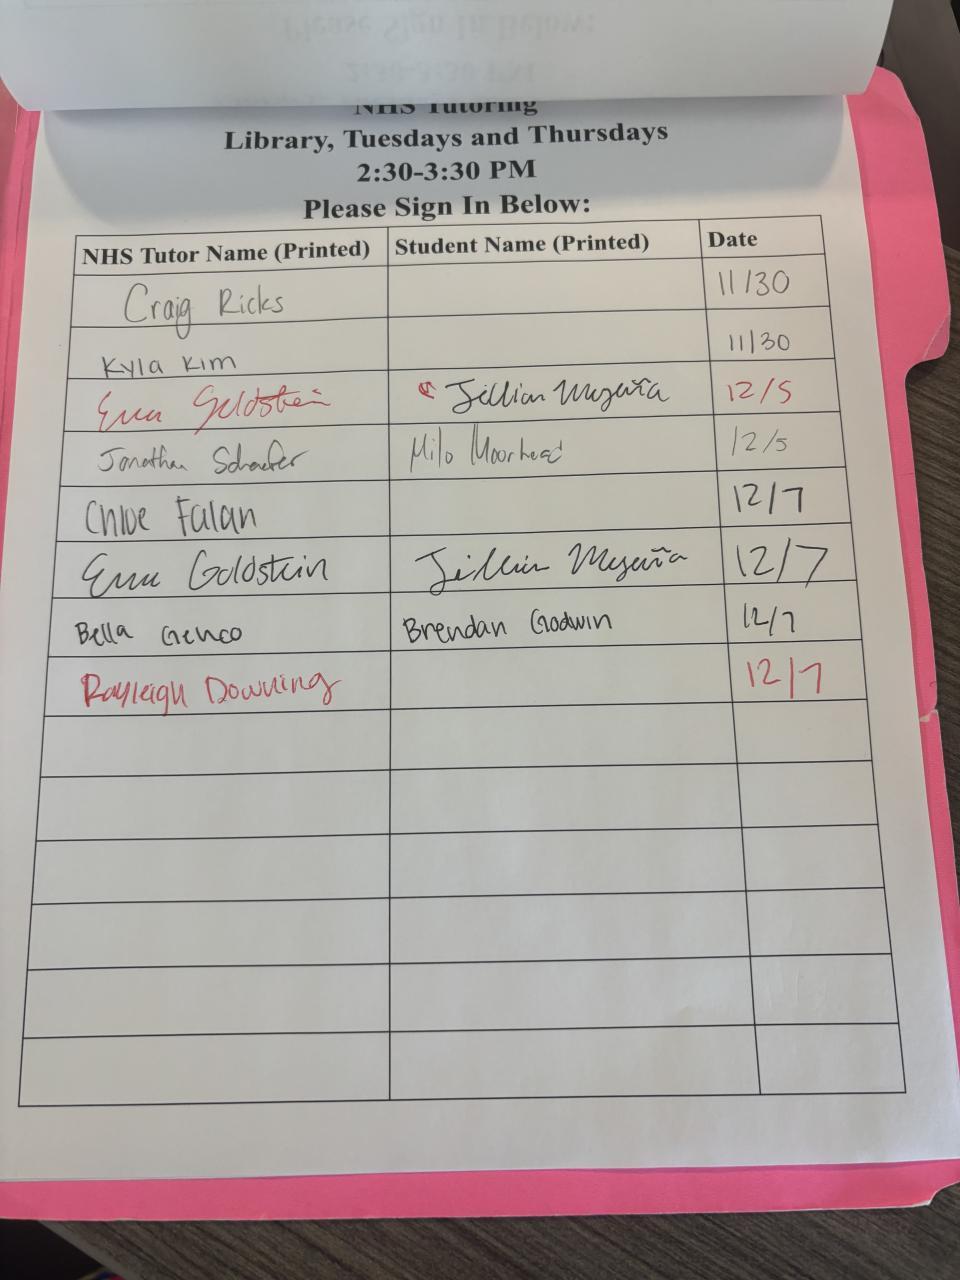 NHS Tutoring
Library, Tuesdays and Thursdays
2:30-3:30 PM
Please Sign In Below:
NHS Tutor Name (Printed) Student Name (Printed) Date
Craig Ricks 11/30
Kyla Kim 11/30
Goldstein Jillian 12/5
Jonathan Schaefer Milo Moorhead 12/5
Chloe Falan 12/7
Goldstein Jillian 12/7
Bella Genco Brendan Godwin 12/7
Rayleigh Downing 12/7